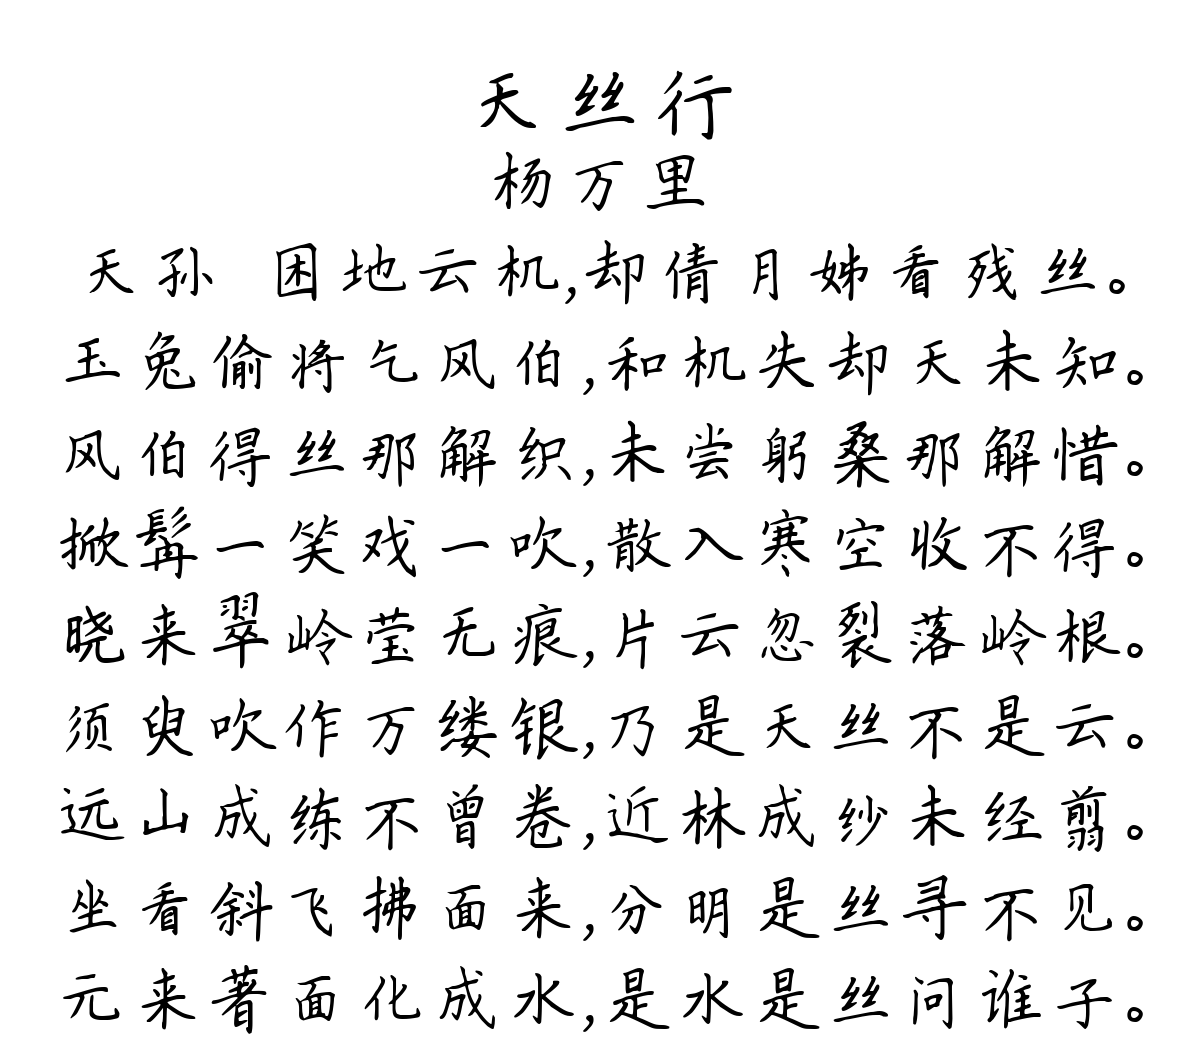 天丝行
杨万里
天孙 困地云机,却倩月姊看残丝。
玉兔偷将乞风伯,和机失却天未知。
风伯得丝那解织,未尝躬桑那解惜。
掀髯一笑戏一吹,散入寒空收不得。
晓来翠岭莹无痕,片云忽裂落岭根。
须臾吹作万缕银,乃是天丝不是云。
远山成练不曾卷,近林成纱未经翦。
坐看斜飞拂面来,分明是丝寻不见。
元来著面化成水,是水是丝问谁子。